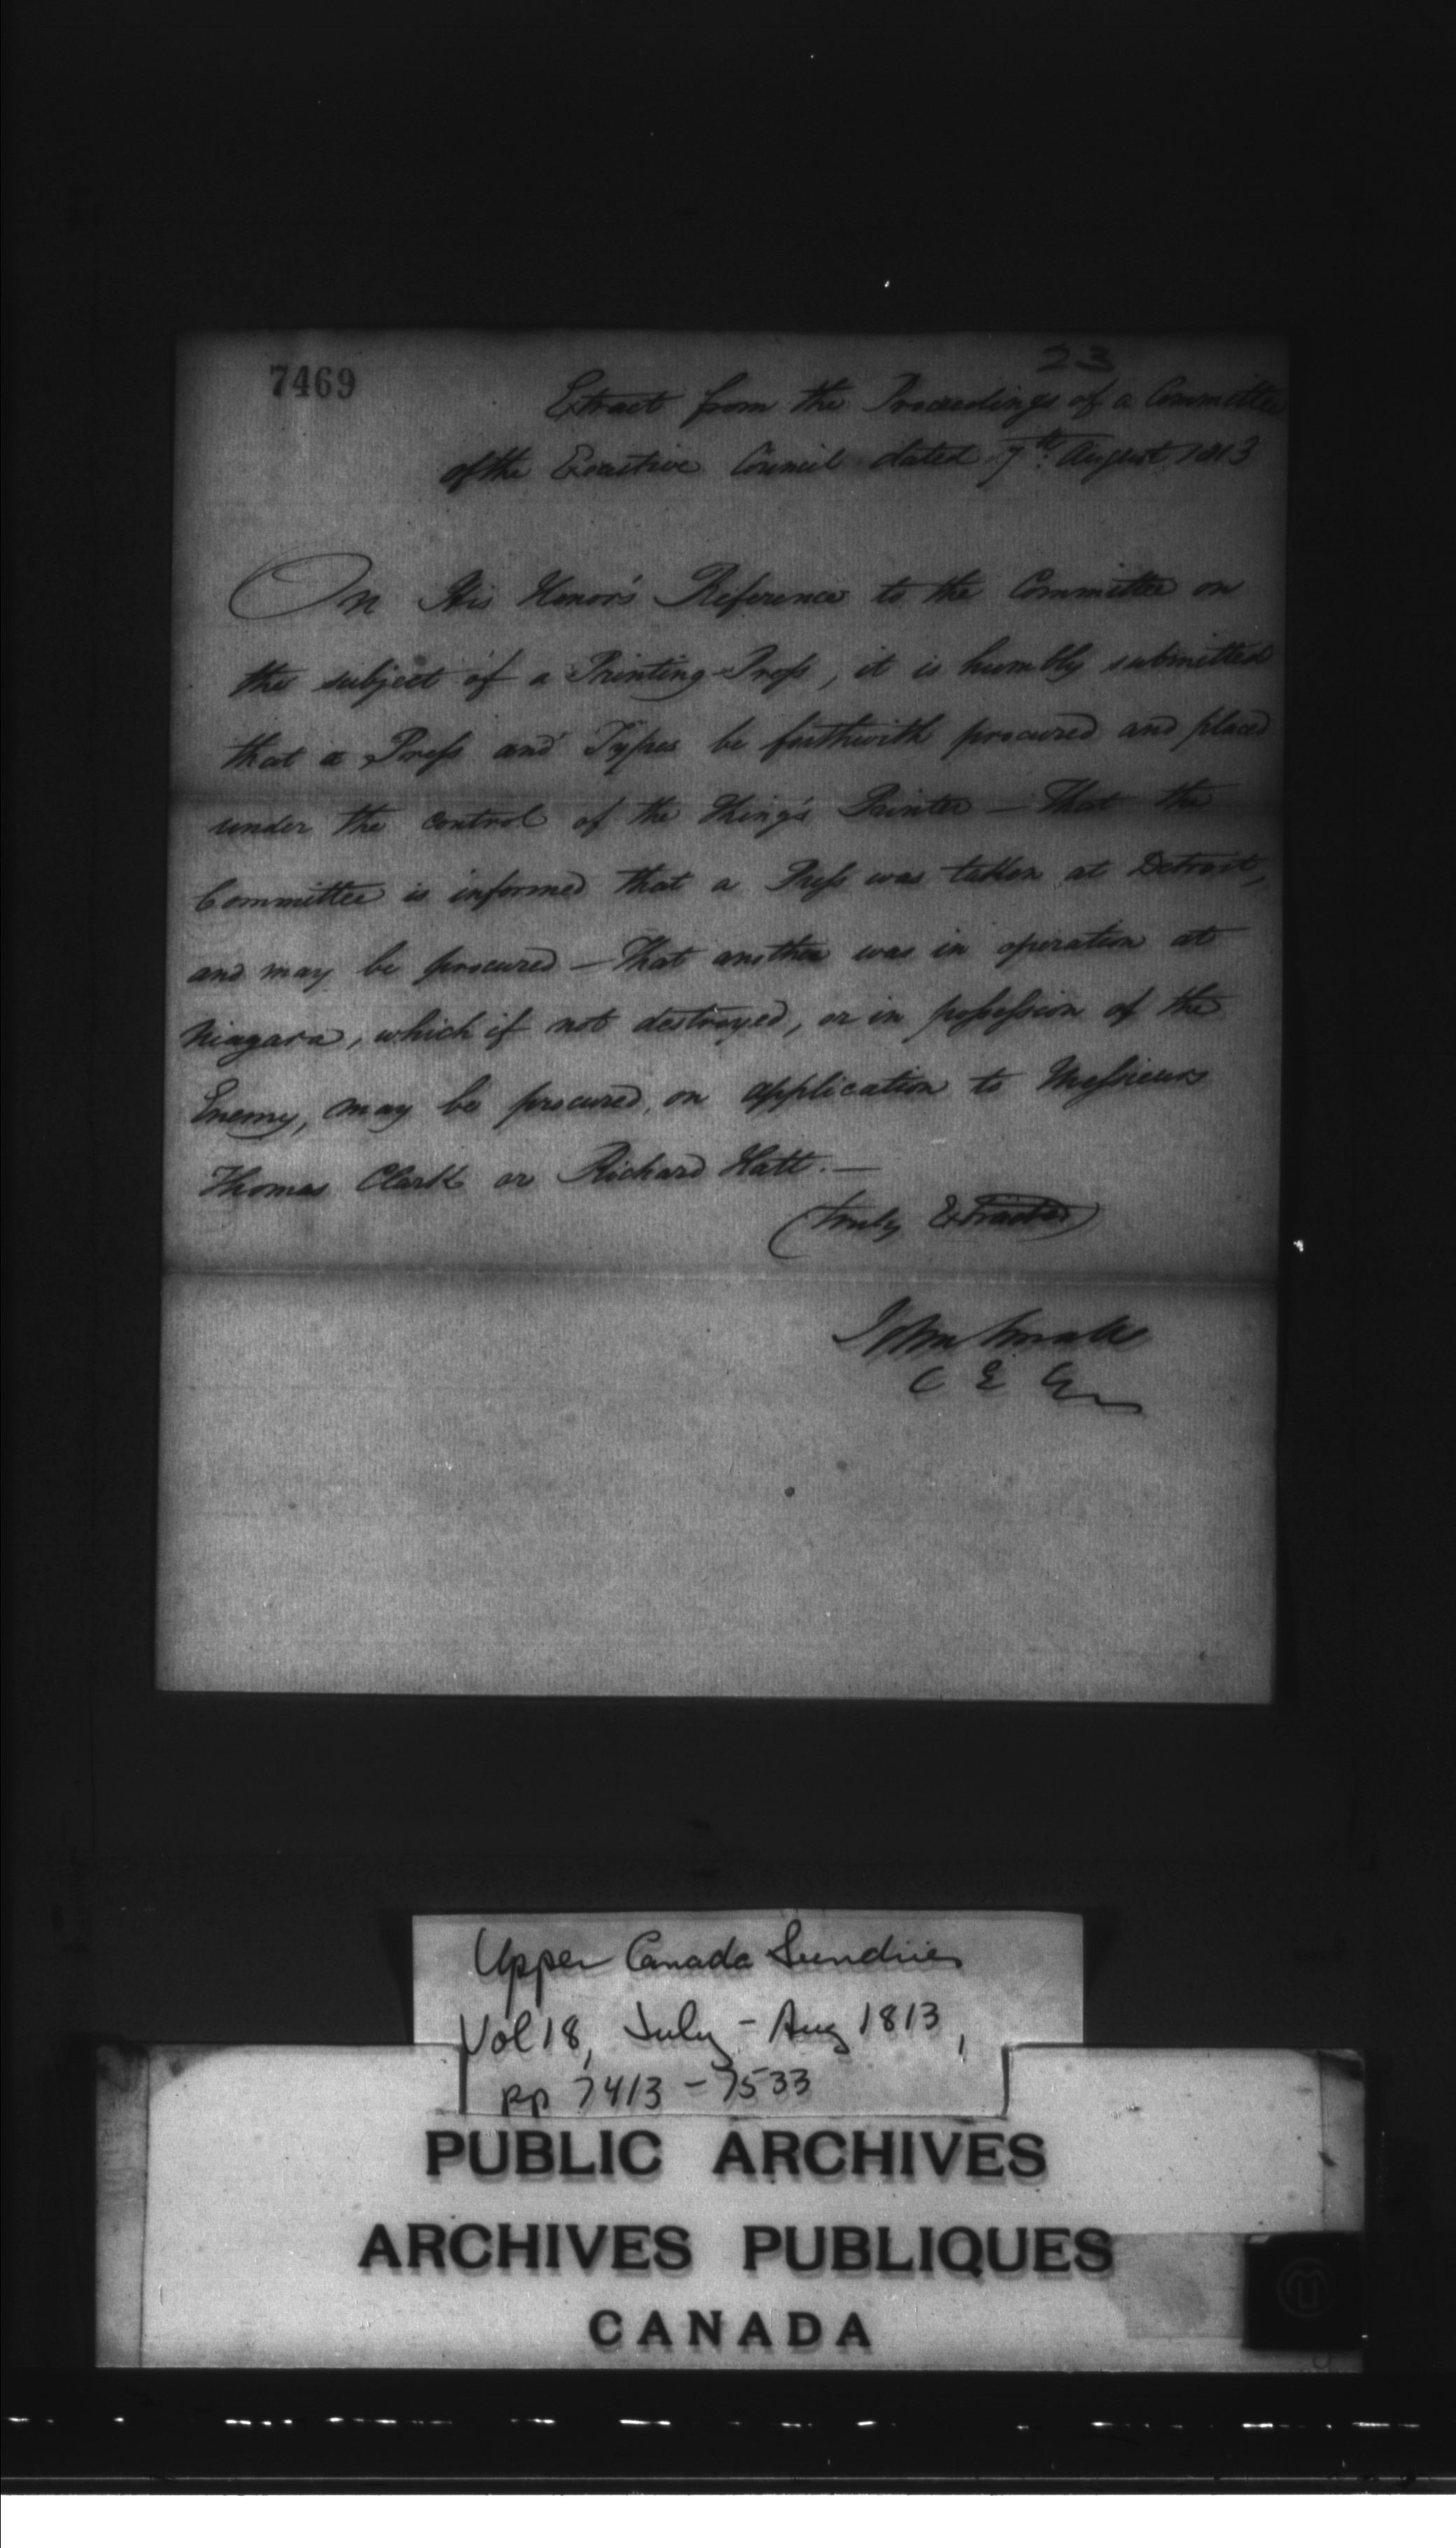 7469
23
Extract from the Proceedings of a Committee
of the Executive Council dated 7th. August 1813
On His Honor's Reference to the Committee on
the subject of a Printing-Press, it is humbly submitted
that a Press and Types be forthwith procured and placed
under the control of the King's Printer — That the
Committee is informed that a Press was taken at Detroit,
and may be procured — That another was in operation at
Niagara, which if not destroyed, or in possession of the
Enemy, may be procured, on application to Messieurs
Thomas Clark or Richard Hatt. —
(truly Extracted)
John Small
C E C
Upper Canada Sundries
Vol 18, July - Aug 1813,
pp 7413 - 7533
PUBLIC ARCHIVES
ARCHIVES PUBLIQUES
CANADA